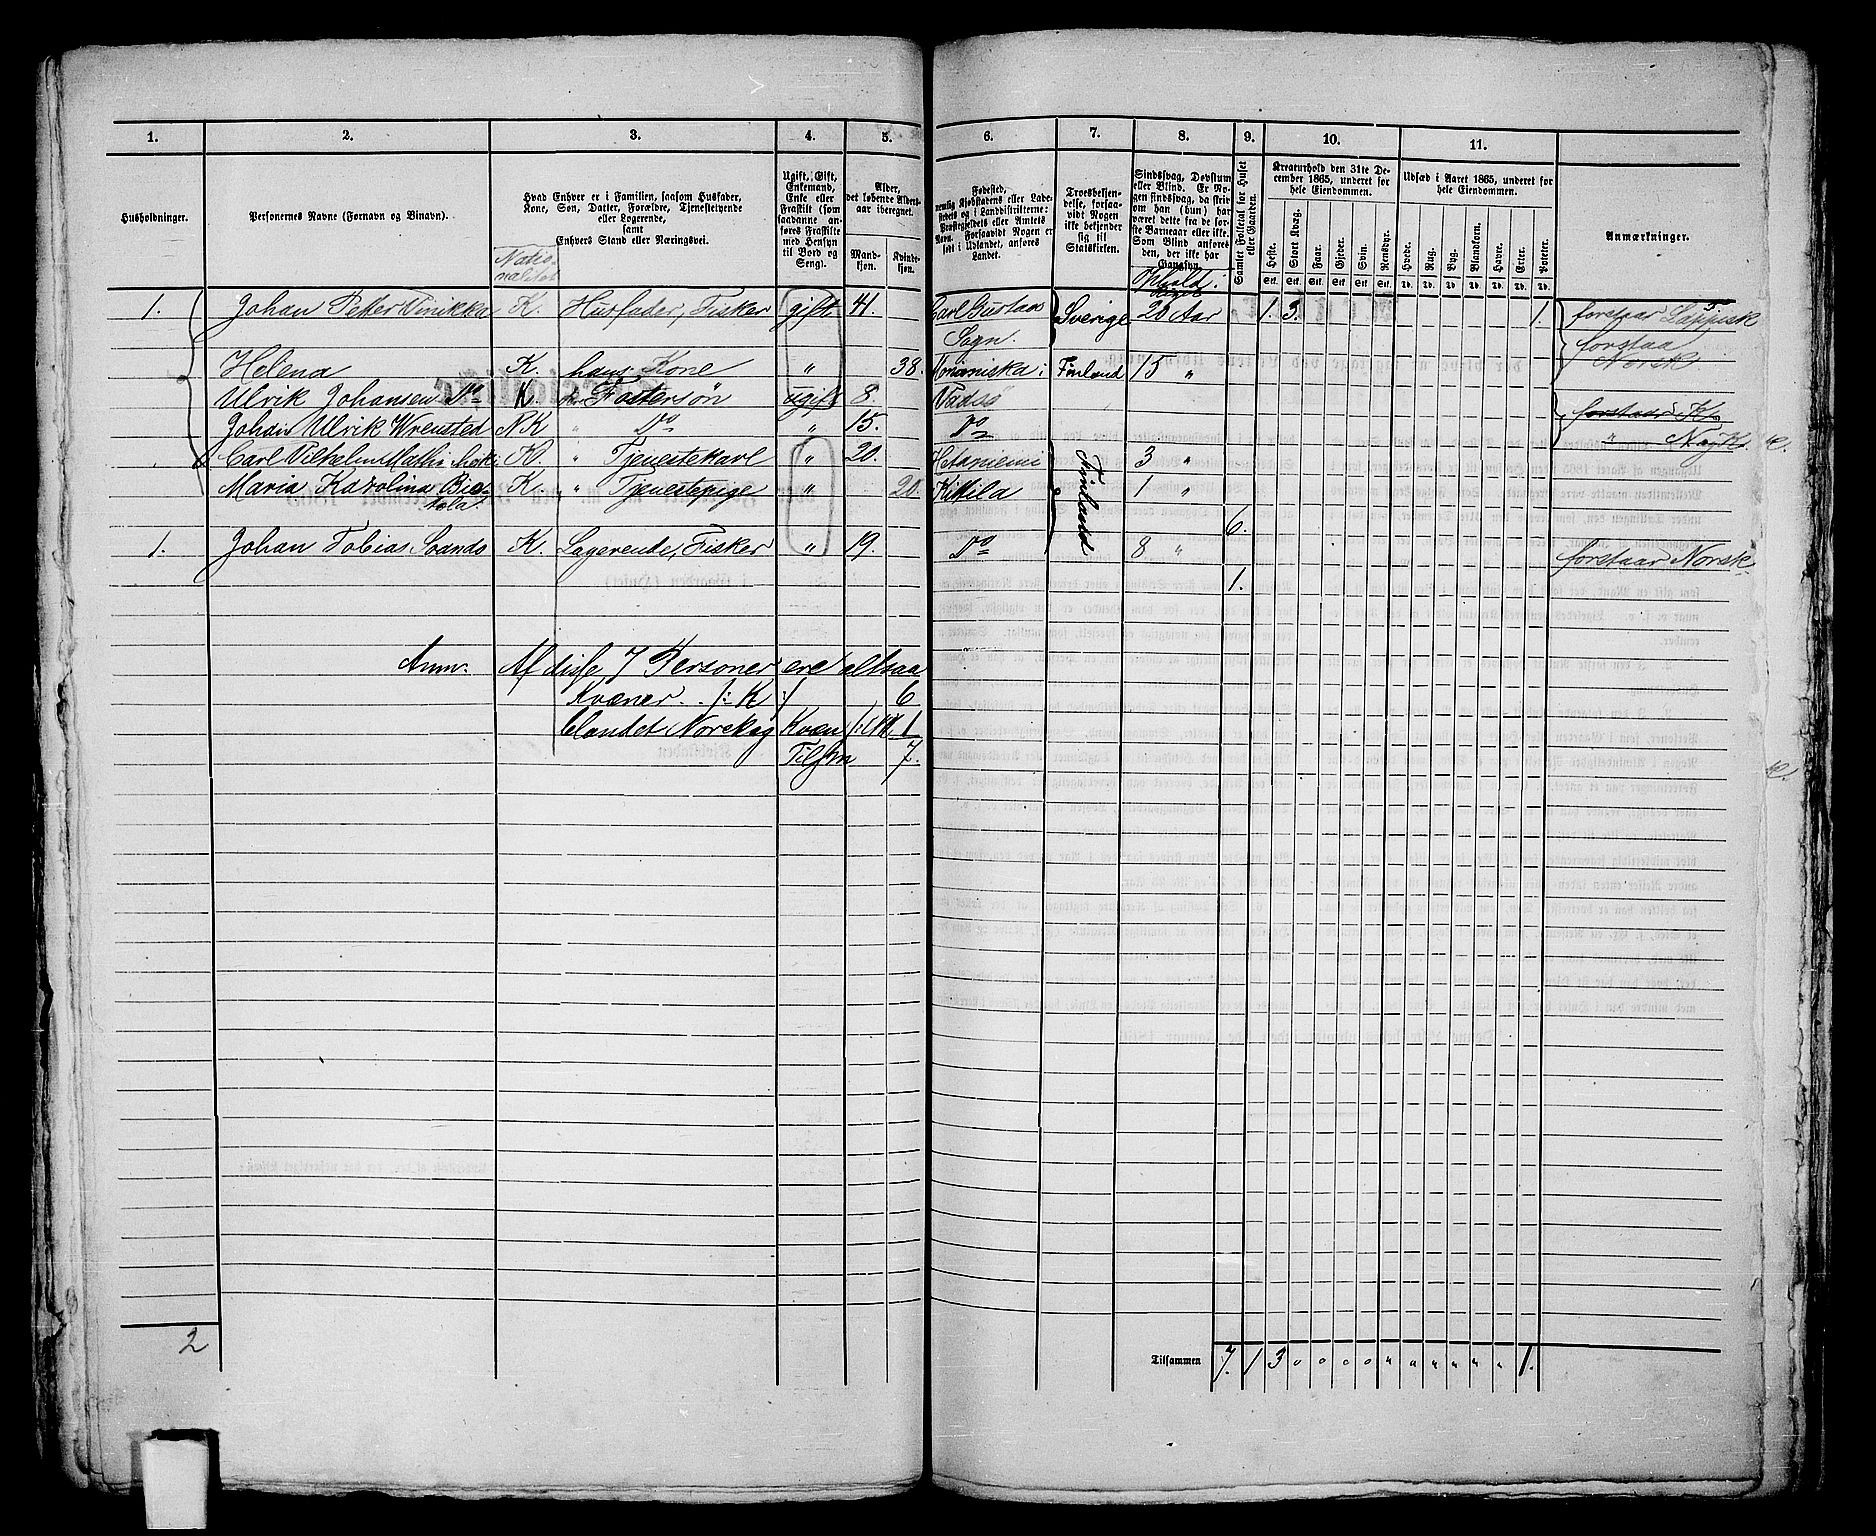 1. 2. 3. 4. 5. 6. 7. 8. 9. 10. 11.
Husholdninger.
Personernes Navne (Fornavn og Binavn).
Hvad Enhver er i Familien, saasom Husfader,
Kone, Søn, Datter, Forældre, Tjenestetyende
eller Logerende,
samt
Enhvers Stand eller Næringsvei.
Natio-
nalitet
Ugift, Gift,
Enkemand,
Enke eller
Fraskilt (som
saadanne an-
føres Fraskilte
med Hensyn
til Bord og
Seng).
Alder,
det løbende Alders-
aar iberegnet.
Mand-
kjøn.
Kvinde-
kjøn.
Fødested,
nemlig Kjøbstadens eller Lade-
stedets og i Landdistrikterne:
Præstegjeldets eller Amtets
Navn. Forsaavidt Nogen er
født i Udlandet, anføres
Landet.
Troesbekjen-
delse, forsaa-
vidt Nogen
ikke bekjender
sig til
Statskirken.
Sindssvag, Døvstum
eller Blind. Er No-
gen sindssvag, da skriv
om han (hun) har
været dette fra de før-
ste Barneaar eller ikke.
Som Blind anføres
den, der ikke har
Gangsyn.
Samlet Folketal for Huset
eller Gaarden.
Kreaturhold den 31te De-
cember 1865, underet for
hele Eiendommen.
Heste. Stort Kvæg. Faar. Gjeder. Svin. Rensdyr.
Stk. Stk. Stk. Stk. Stk. Stk.
Udsæd i Aaret 1865, underet for
hele Eiendommen.
Hvede. Rug. Byg. Blandkorn. Havre. Erter. Poteter.
Td. Td. Td. Td. Td. Td. Td.
Anmærkninger.
1. Johan Petter Vinikka K. Husfader, Fisker gift 41. Carl Gustaa Sverige 20 Aar 1. 3. 1. forstaar Lappisk
Sogn. forstaa
Helena K. hans Kone " 38. Finland 15 " Norsk
Ulrik Johansen Do K. Fostersøn ugift 8. Vadsø
Johan Ulrik Wrensted NK " Do " 15. Do
Carl Vilhelm K " Tjenestekarl " 20. Hetaniemi Finland 3 "
Maria Karolina K. " Tjenestepige " 20. Kitila 1 "
6.
1. Johan Tobias K. Logerende, Fisker " 19. Do 8 " forstaar Norsk
1.
Anm. Af disse 7 Personer ere altsaa
Kvæner . /: K :/ 6
blandet Norsk og Kvæn /: NK 1
Tils'm 7.
2
Tilsammen 7. 1 3 " " " " " " " " " " 1.